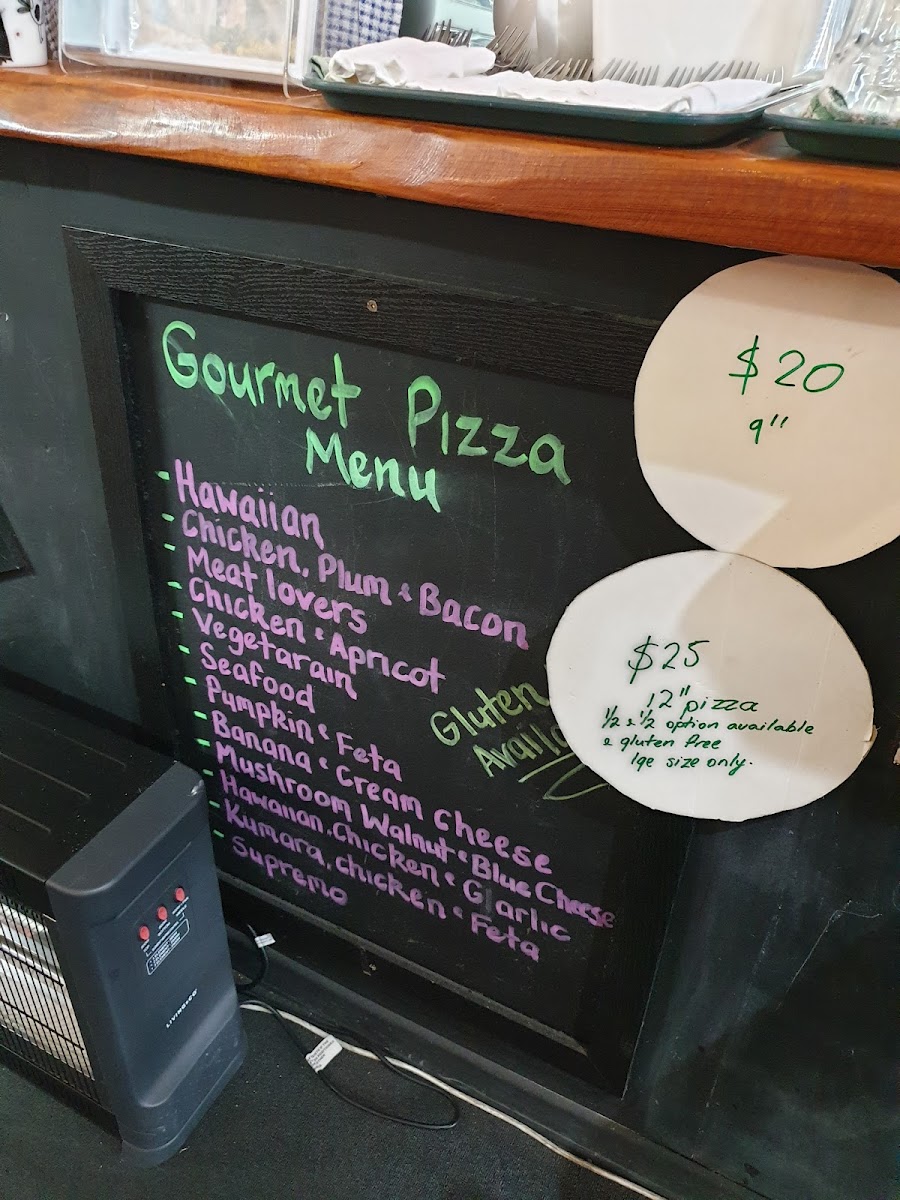 Gourmet Pizza
Menu
- Hawaiian
- Chicken, Plum & Bacon
- Meat lovers
- Chicken & Apricot
- Vegetarain
- Seafood
- Pumpkin & Feta
- Banana & Cream cheese
- Mushroom Walnut & Blue Cheese
- Hawaiian, Chicken & Garlic
- Kumara, chicken & Feta
- Supremo
Gluten
$20
9"
$25
12" pizza
1/2 & 1/2 option available
& gluten free
lge size only.
LIVING & CO